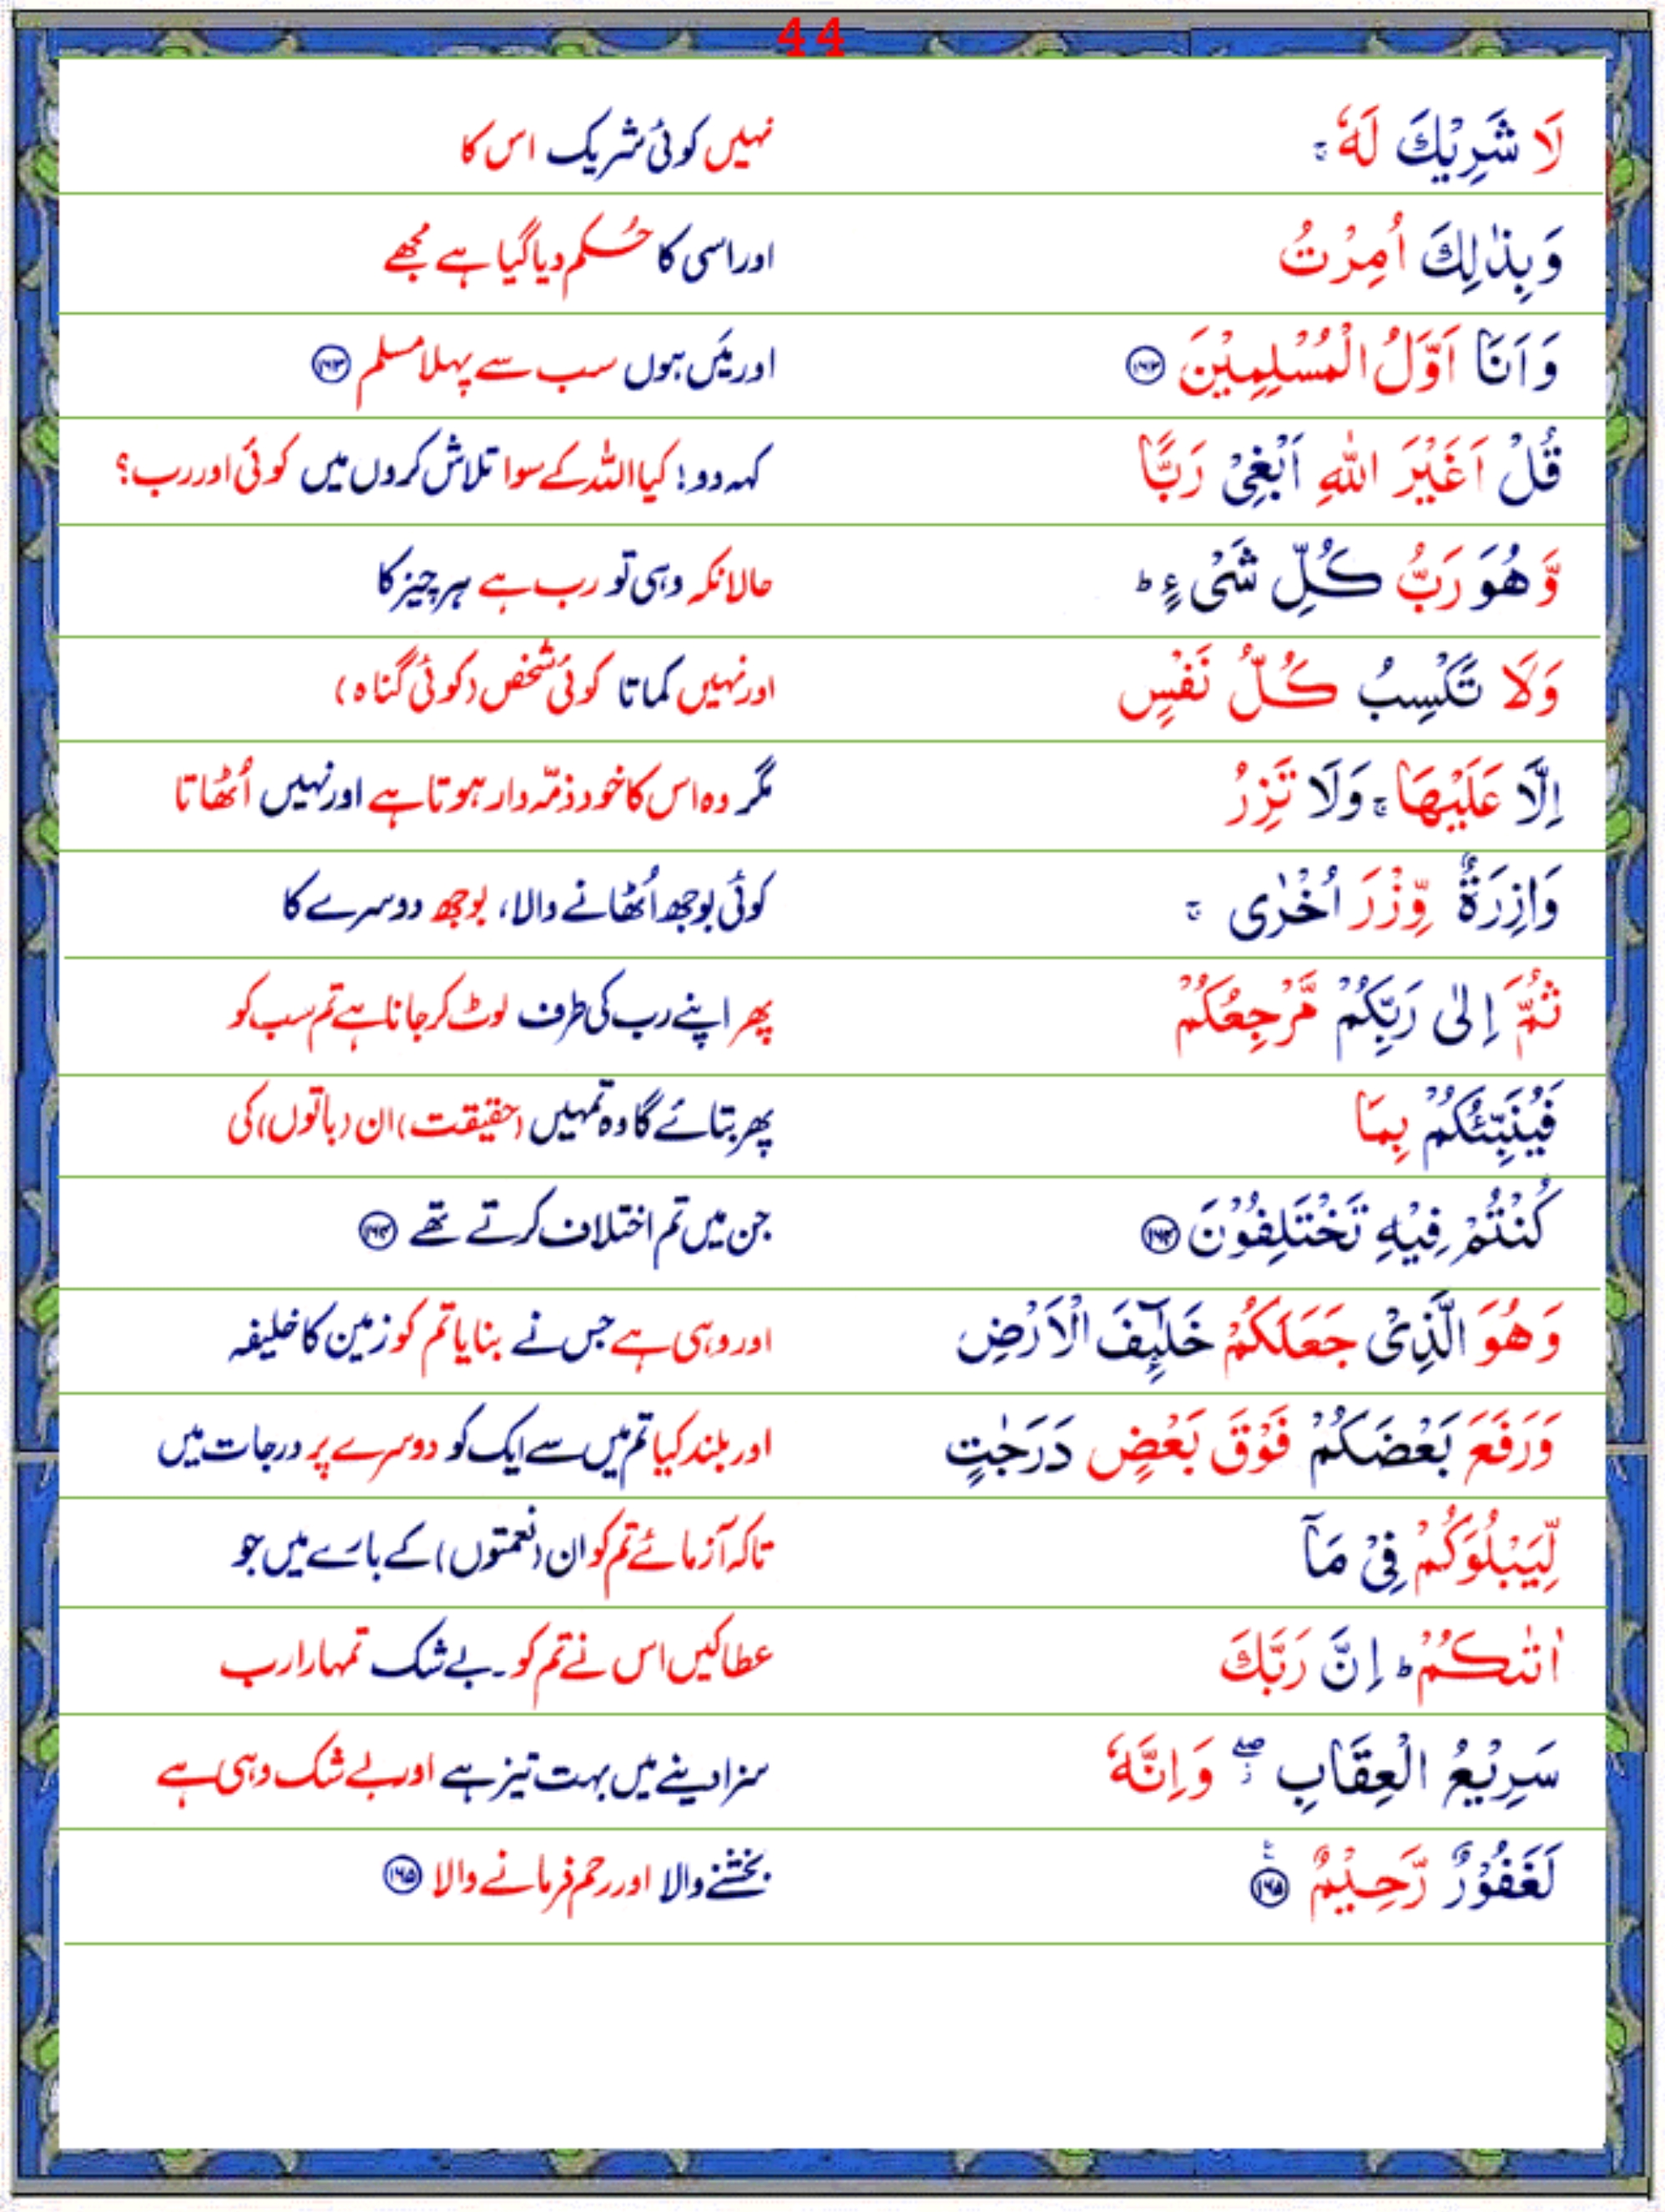 44
لَا شَرِيْكَ لَهٗ ۚ نہیں کوئی شریک اس کا
وَبِذٰلِكَ اُمِرْتُ اور اسی کا حُکم دیا گیا ہے مجھے
وَاَنَا اَوَّلُ الْمُسْلِمِيْنَ ﴿۱۶۳﴾ اور مَیں ہوں سب سے پہلا مسلم ﴿۱۶۳﴾
قُلْ اَغَيْرَ اللّٰهِ اَبْغِىْ رَبًّا کہہ دو! کیا اللہ کے سوا تلاش کروں میں کوئی اور رب؟
وَّهُوَ رَبُّ كُلِّ شَىْءٍ ؕ حالانکہ وہی تو رب ہے ہر چیز کا
وَلَا تَكْسِبُ كُلُّ نَفْسٍ اور نہیں کماتا کوئی شخص (کوئی گناہ)
اِلَّا عَلَيْهَا ۚ وَلَا تَزِرُ مگر وہ اس کا خود ذمّہ دار ہوتا ہے اور نہیں اُٹھاتا
وَازِرَةٌ وِّزْرَ اُخْرٰى ۚ کوئی بوجھ اُٹھانے والا، بوجھ دوسرے کا
ثُمَّ اِلٰى رَبِّكُمْ مَّرْجِعُكُمْ پھر اپنے رب کی طرف لوٹ کر جانا ہے تم سب کو
فَيُنَبِّئُكُمْ بِمَا پھر بتائے گا وہ تمہیں (حقیقت) ان (باتوں) کی
كُنْتُمْ فِيْهِ تَخْتَلِفُوْنَ ﴿۱۶۴﴾ جن میں تم اختلاف کرتے تھے ﴿۱۶۴﴾
وَهُوَ الَّذِىْ جَعَلَكُمْ خَلٰٓئِفَ الْاَرْضِ اور وہی ہے جس نے بنایا تم کو زمین کا خلیفہ
وَرَفَعَ بَعْضَكُمْ فَوْقَ بَعْضٍ دَرَجٰتٍ اور بلند کیا تم میں سے ایک کو دوسرے پر درجات میں
لِّيَبْلُوَكُمْ فِىْ مَآ تاکہ آزمائے تم کو ان (نعمتوں) کے بارے میں جو
اٰتٰىكُمْ ؕ اِنَّ رَبَّكَ عطا کیں اس نے تم کو۔ بے شک تمہارا رب
سَرِيْعُ الْعِقَابِ ۖ وَاِنَّهٗ سزا دینے میں بہت تیز ہے اور بے شک وہی ہے
لَغَفُوْرٌ رَّحِيْمٌ ﴿۱۶۵﴾ بخشنے والا اور رحم فرمانے والا ﴿۱۶۵﴾